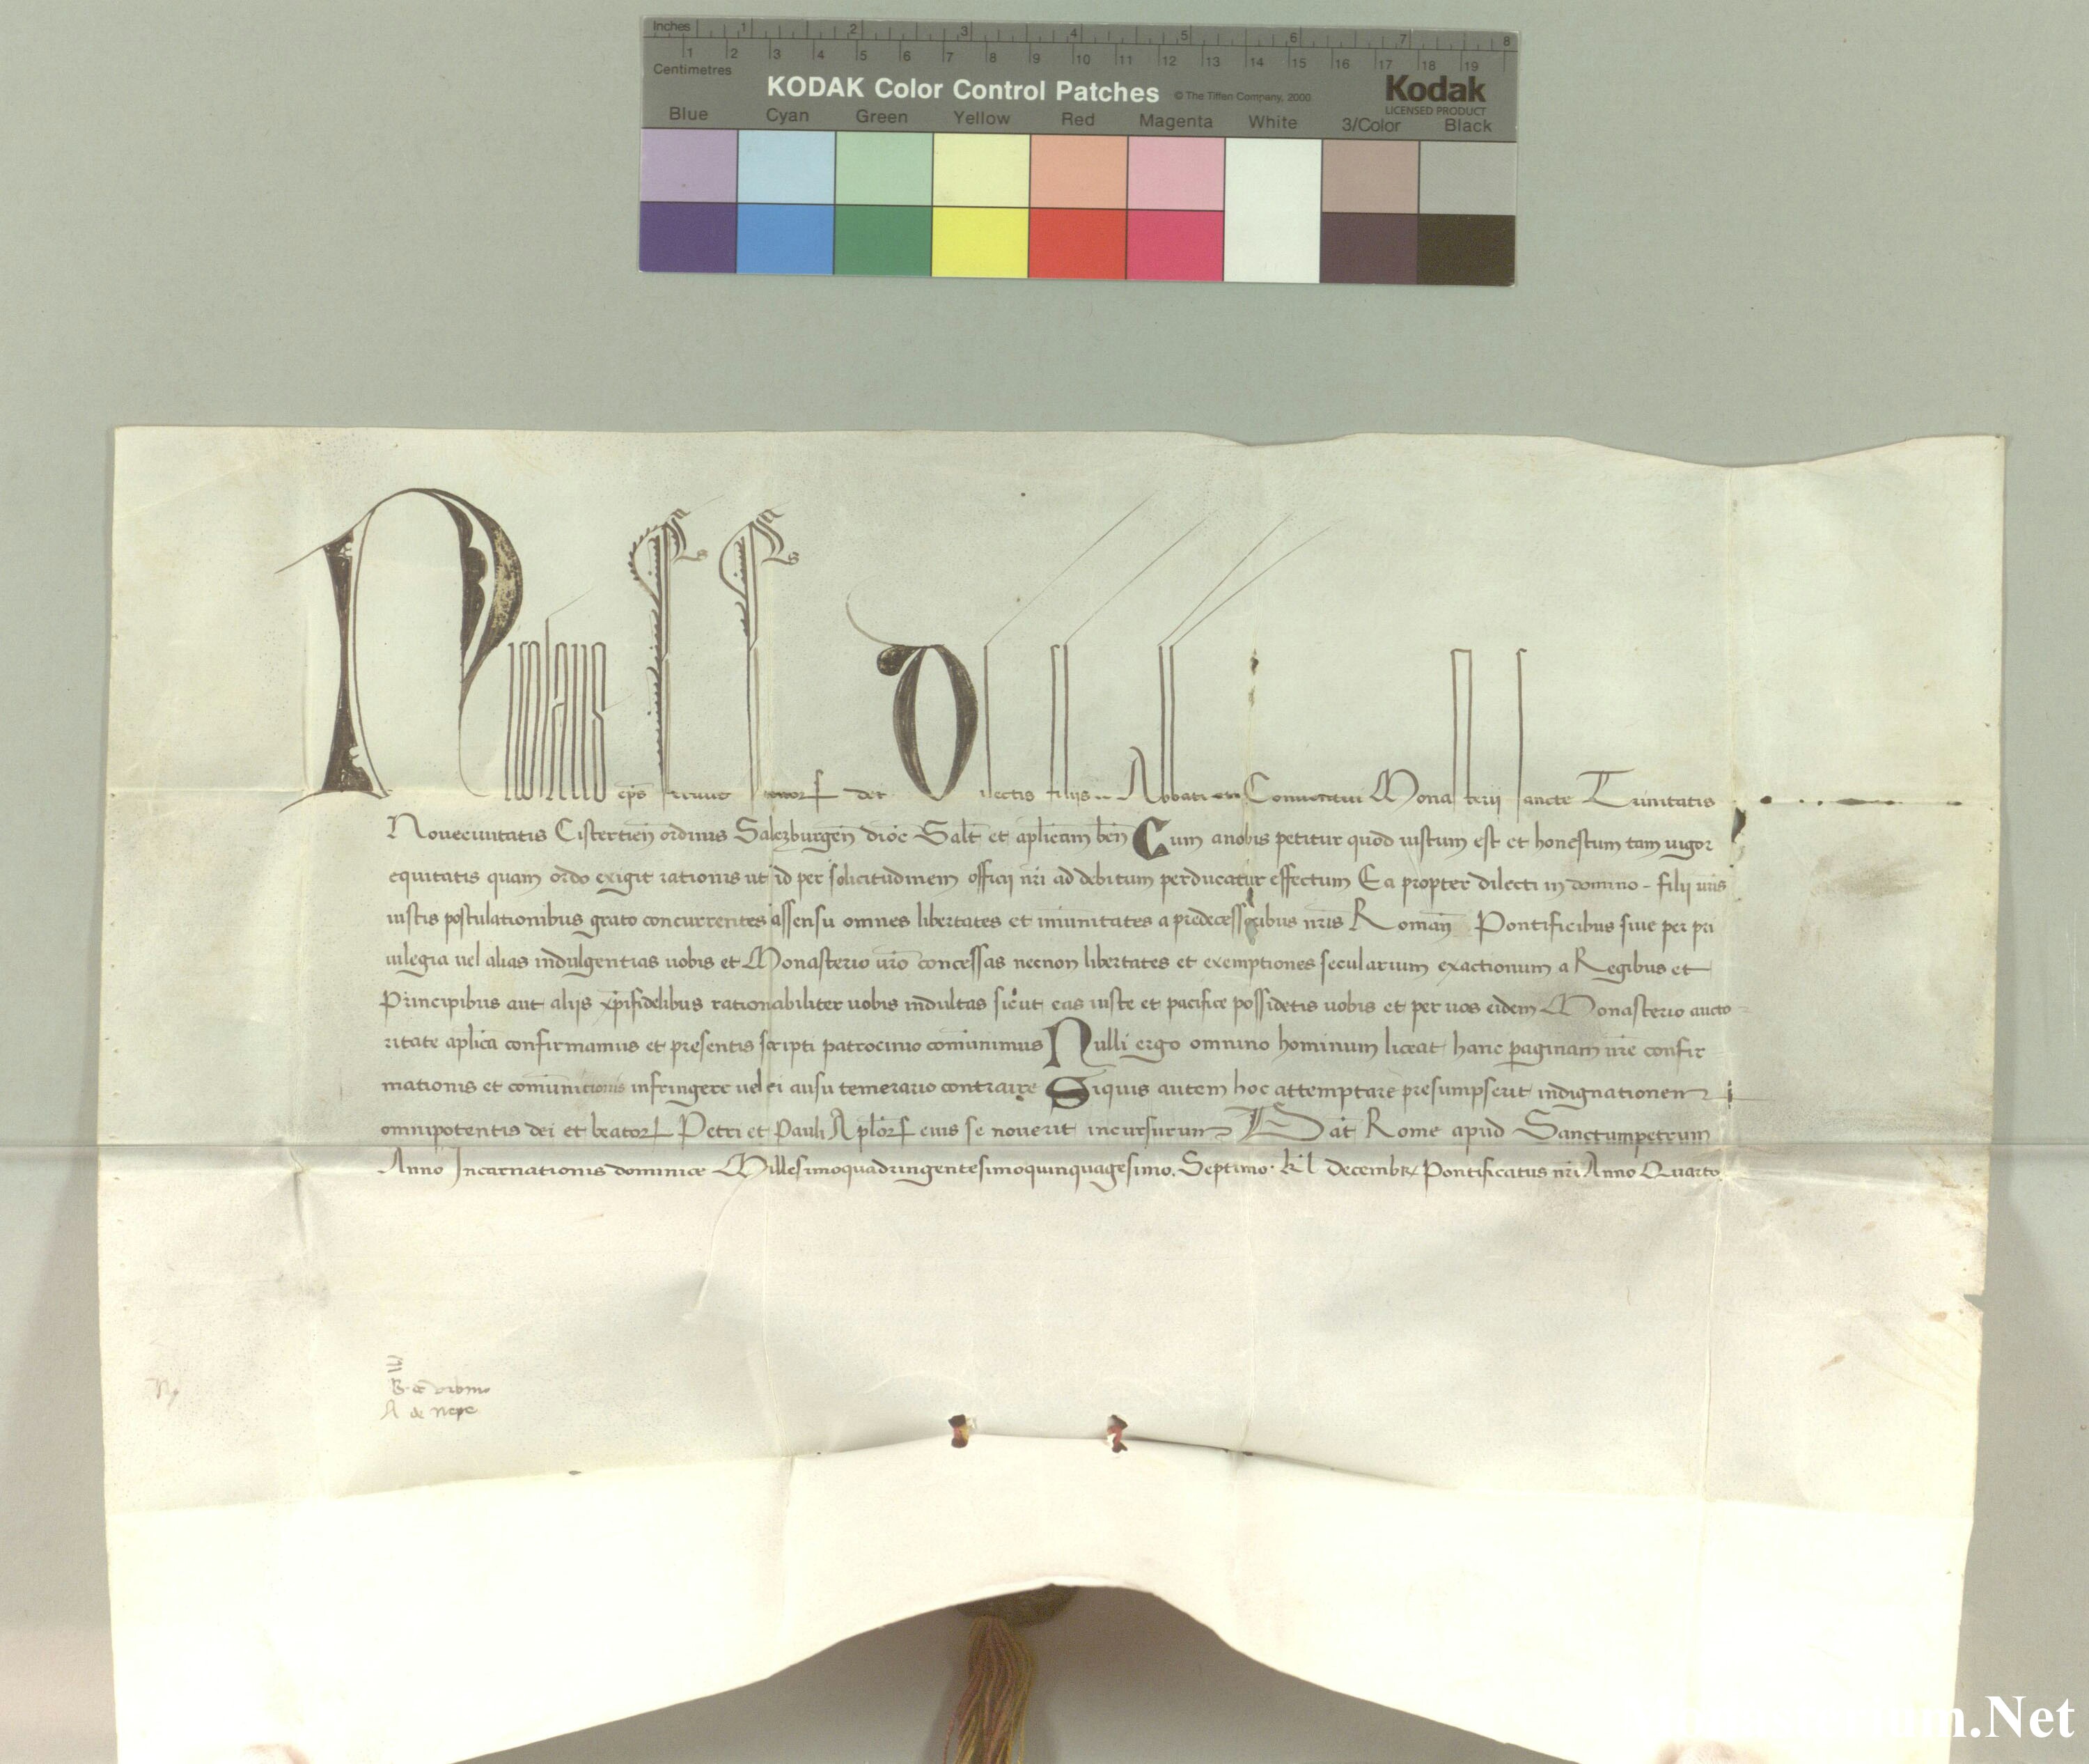 Inches 1 2 3 4 5 6 7 8
1 2 3 4 5 6 7 8 9 10 11 12 13 14 15 16 17 18 19
Centimetres
KODAK Color Control Patches © The Tiffen Company, 2000 Kodak
LICENSED PRODUCT
Blue Cyan Green Yellow Red Magenta White 3/Color Black
Nicolaus ep̄s seruus seruorꝝ dei Dilectis filiis .. Abbati et Conuentui Monasterij sancte Trinitatis
Noueciuitatis Cistertien̄ ordinis Salczburgen̄ dioc̄ Salt̄ et apl̄icam ben̄ Cum anobis petitur quod iustum est et honestum tam uigor
equitatis quam ordo exigit rationis ut id per solicitudinem officij nr̄i ad debitum perducatur effectum Ea propter dilecti in domino - filij ur̄is
iustis postulationibus grato concurrentes assensu omnes libertates et im̄unitates a predecessoribus nr̄is Roman̄ Pontificibus siue per pri
uilegia uel alias indulgentias uobis et Monasterio ur̄o concessas necnon libertates et exemptiones secularium exactionum a Regibus et
Principibus aut alijs xp̄ifidelibus rationabiliter uobis indultas sicut eas iuste et pacifice possidetis uobis et per uos eidem Monasterio aucto
ritate apl̄ica confirmamus et presentis scripti patrocinio com̄unimus Nulli ergo omnino hominum liceat hanc paginam nr̄e confir
mationis et com̄unitionis infringere uel ei ausu temerario contraire Siquis autem hoc attemptare presumpserit indignationem
omnipotentis dei et beatorꝝ Petri et Pauli Apl̄orꝝ eius se nouerit incursurum Dat̄ Rome apud Sanctumpetrum
Anno Incarnationis dominice Millesimoquadringentesimoquinquagesimo. Septimo. kl̄ decembr̄ Pontificatus nr̄i Anno Quarto
B. de vrbino
A de nepe
.Net